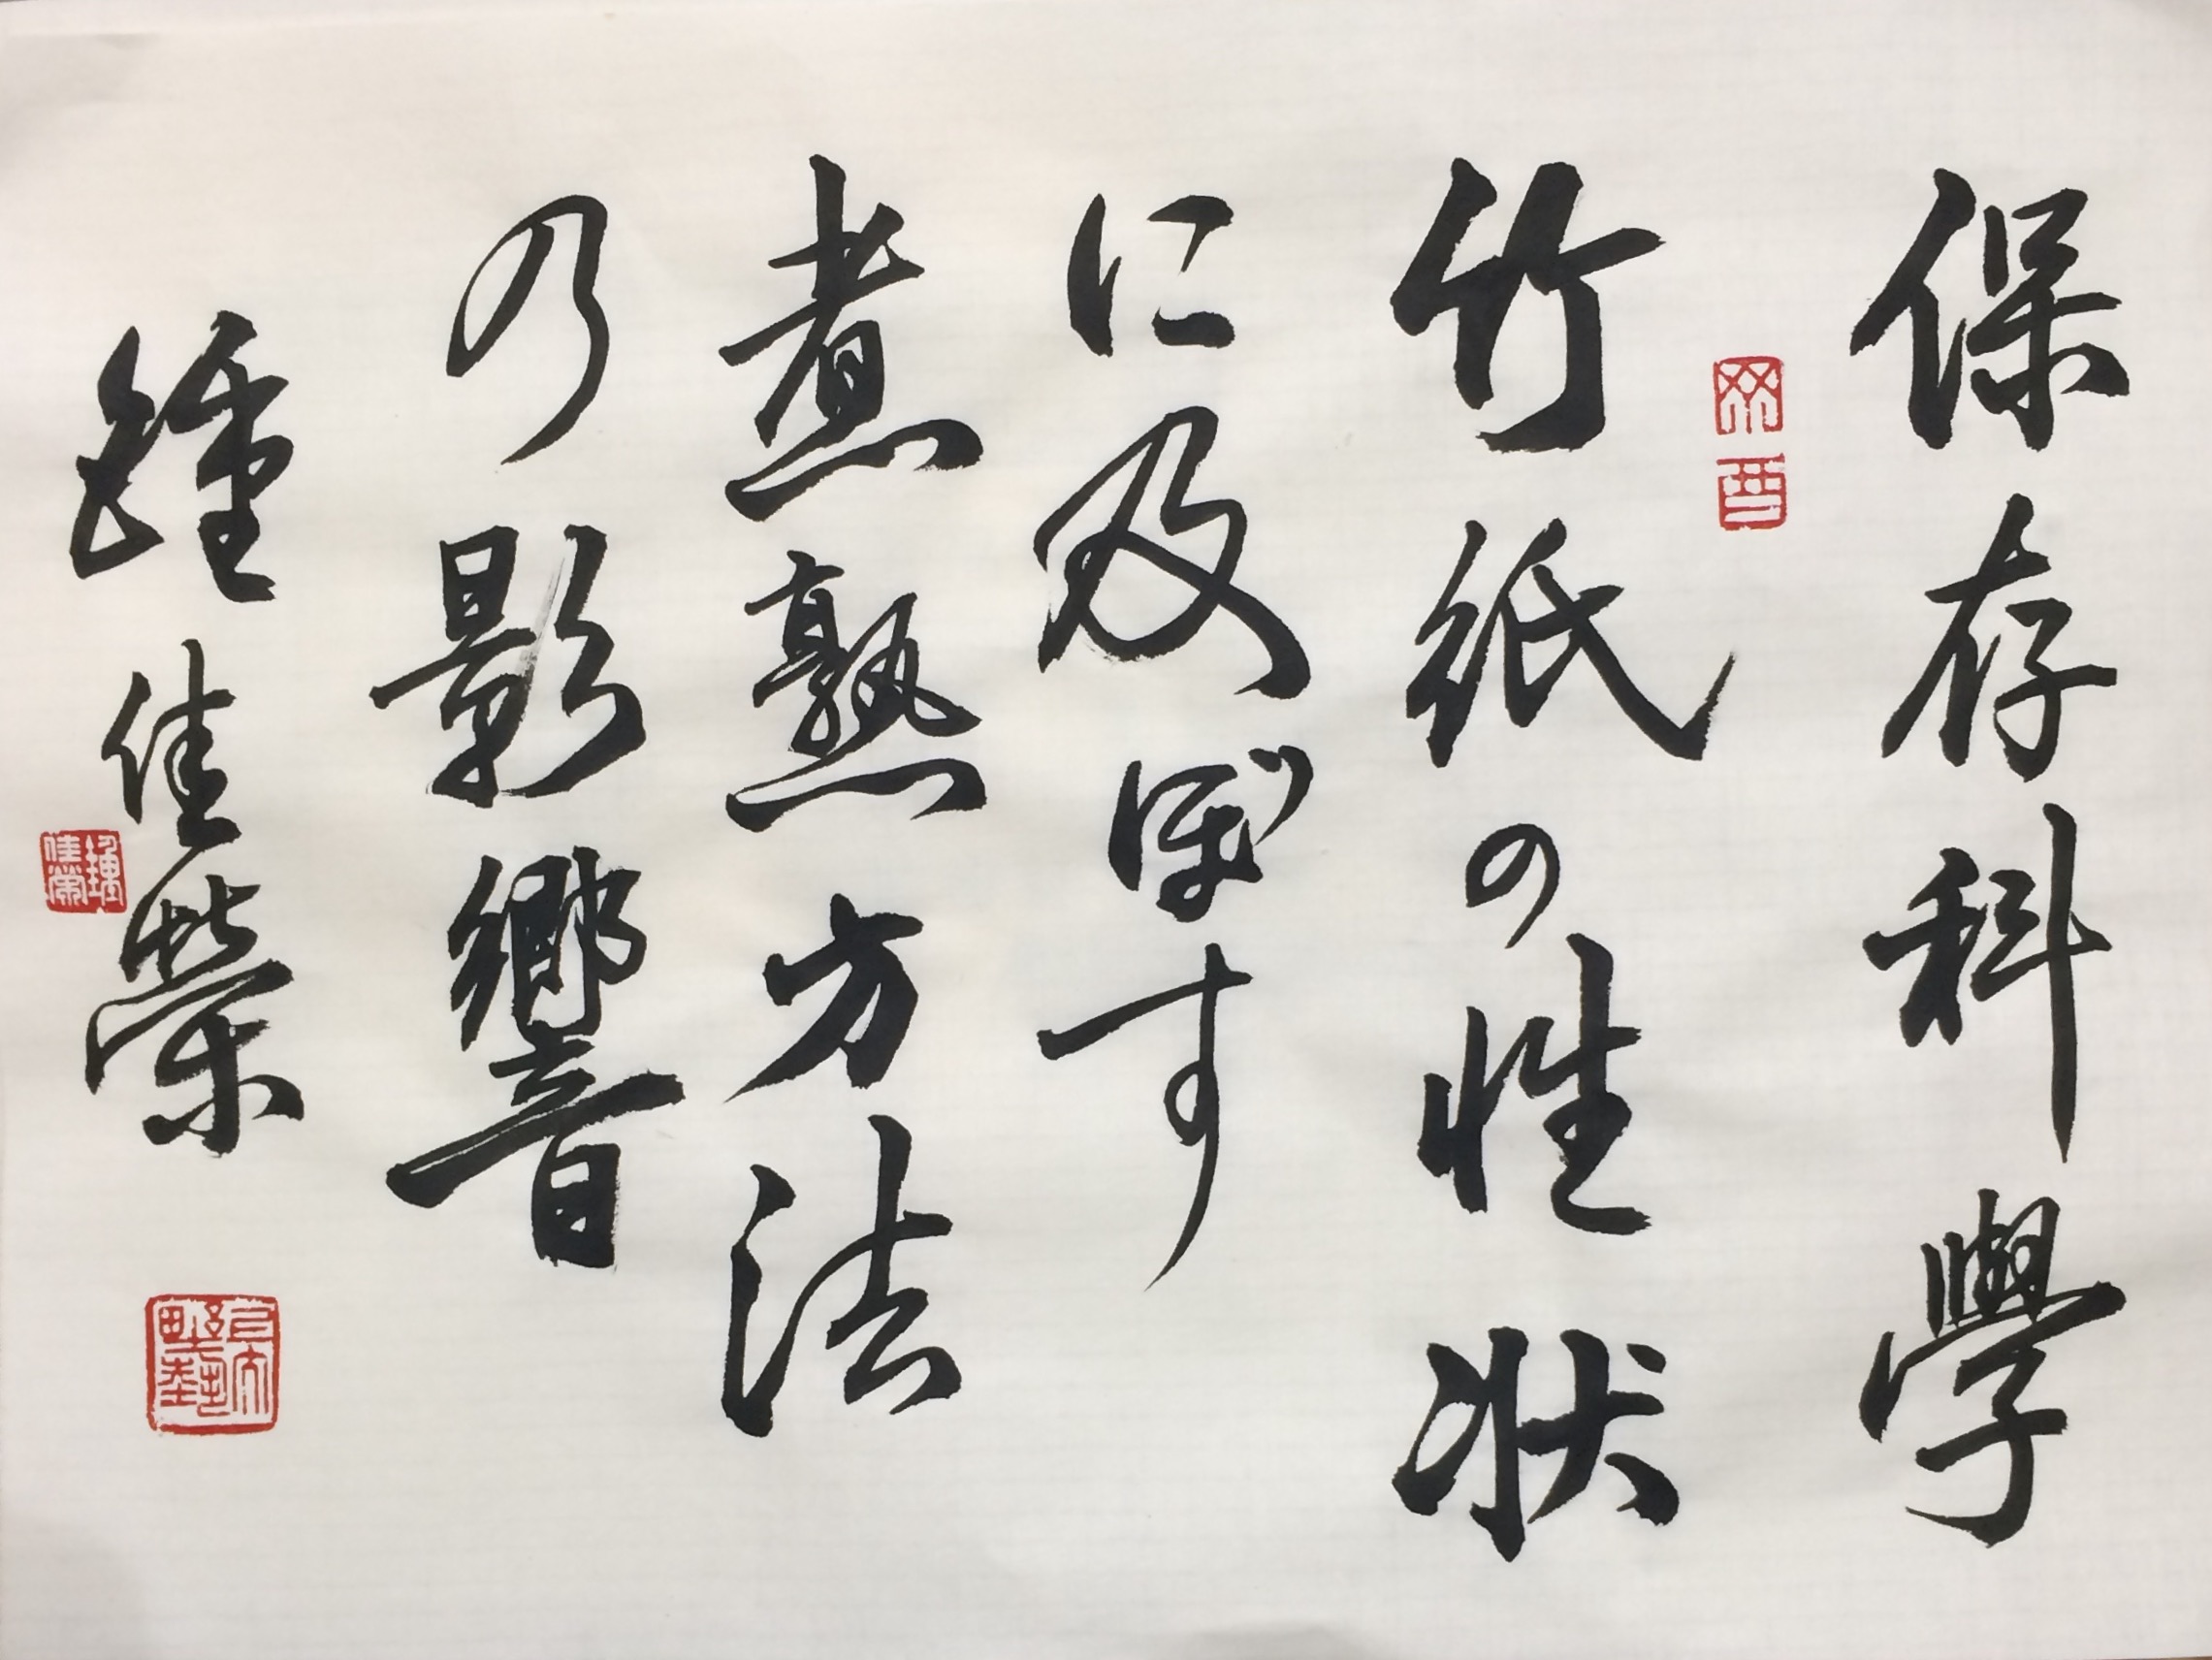 保存科學
竹紙の性状
に及ぼす
煮熟方法
の影響
鍾佳榮